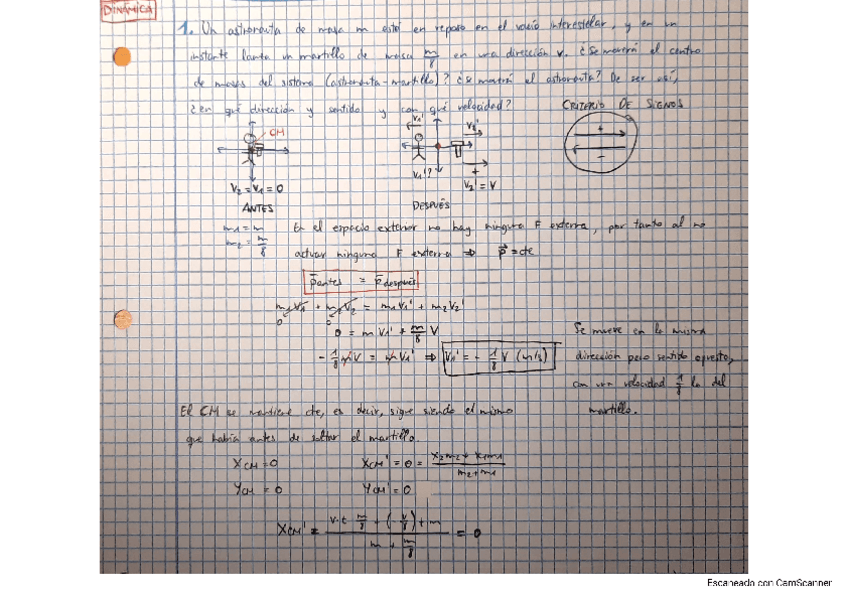 DINÁMICA
1. Un astronauta de masa m está en reposo en el vacío interestelar, y en un
instante lanza un martillo de masa m/8 en una dirección v. ¿Se moverá el centro
de masas del sistema (astronauta-martillo)? ¿Se moverá el astronauta? De ser así,
¿en qué dirección y sentido y con qué velocidad?
CRITERIO DE SIGNOS
CM
V1'
V2'
+
-
V1'?
+
V2 = V1 = 0
V2' = V
ANTES
DESPUÉS
m1 = m
m2 = m/8
En el espacio exterior no hay ninguna F externa, por tanto al no
actuar ninguna F externa ⇒ p⃗ = cte
p⃗antes = p⃗después
m1V1 + m2V2 = m1V1' + m2V2'
0 0
0 = m V1' + m/8 V
- 1/8 m V = m V1' ⇒ V1' = - 1/8 V (m/s)
Se mueve en la misma
dirección pero sentido opuesto,
con una velocidad 1/8 la del
martillo.
El CM se mantiene cte, es decir, sigue siendo el mismo
que había antes de soltar el martillo.
XCM = 0
XCM' = 0 = x2m2 + x1m1 / m2 + m1
YCM = 0
YCM' = 0
XCM' = v·t m/8 + (-v/8) t m / m + m/8 = 0
Escaneado con CamScanner